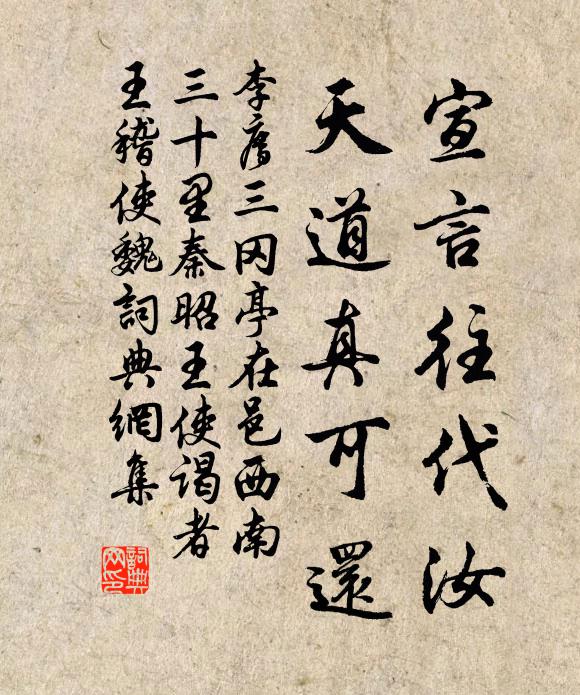 宣言往代汝
天道真可還
李廌三冈亭在邑西南
三十里秦昭王使谒者
王稽使魏詞典網集
詞典网印